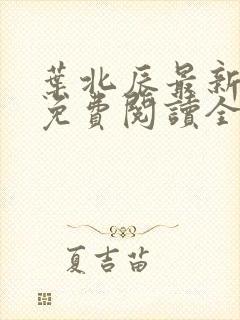 葉北辰最新
免費閱讀全
夏吉苗